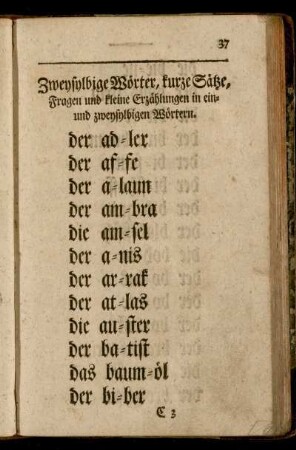 37
Zweysylbige Wörter, kurze Sätze,
Fragen und kleine Erzählungen in ein-
und zweysylbigen Wörtern.
der ad-ler
der af-fe
der a-laun
der am-bra
die am-sel
der a-nis
der ar-rak
der at-las
die au-ster
der ba-tist
das baum-öl
der bi-ber
C 3